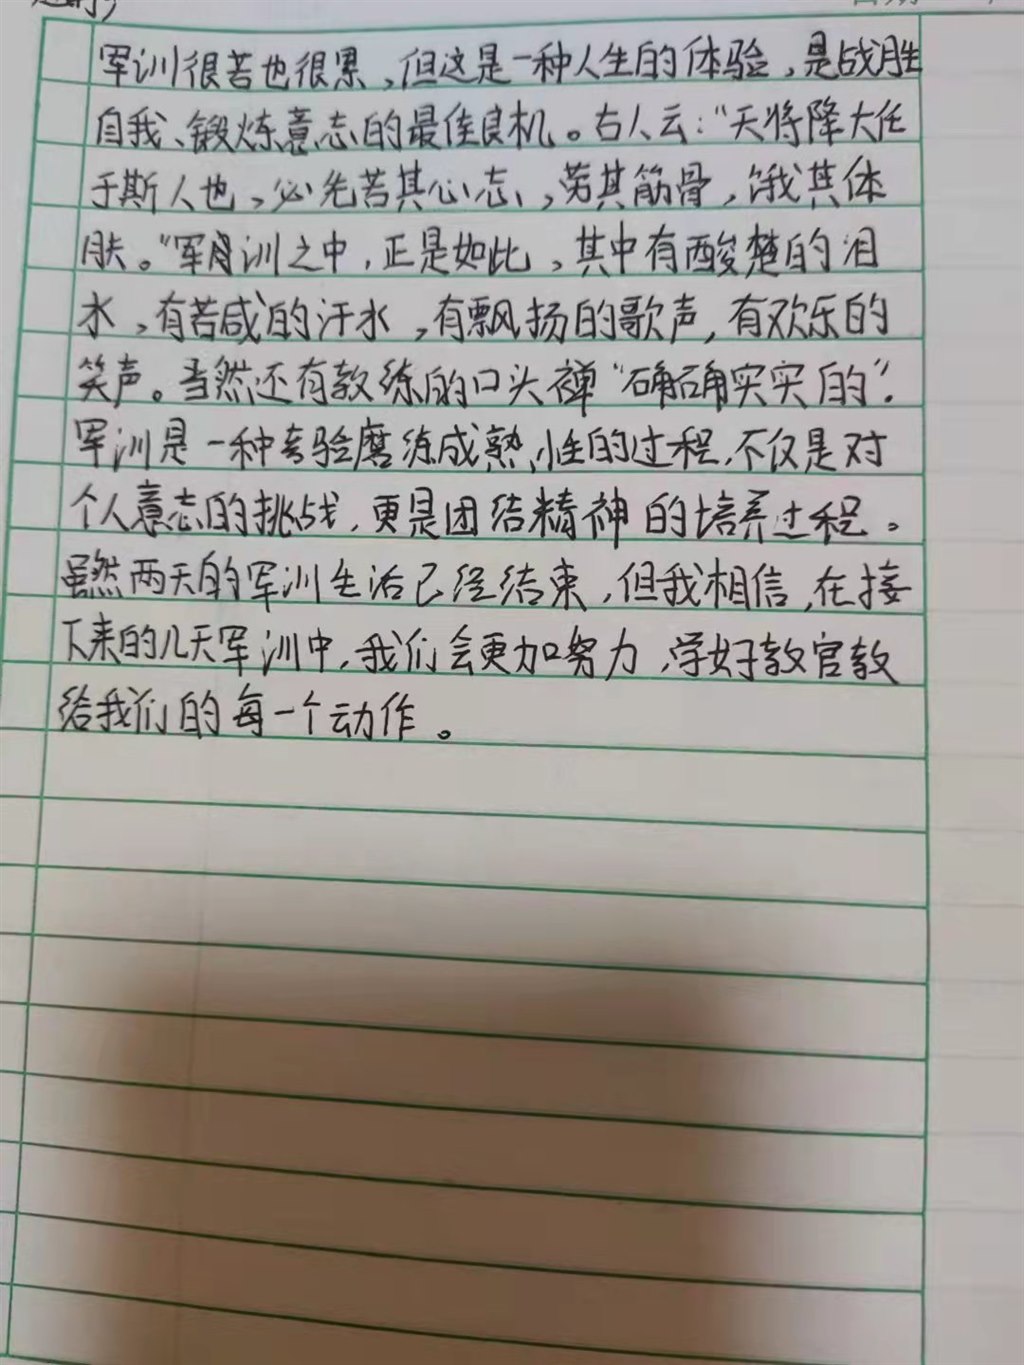 军训很苦也很累，但这是一种人生的体验，是战胜
自我、锻炼意志的最佳良机。古人云：“天将降大任
于斯人也，必先苦其心志，劳其筋骨，饿其体
肤。”军训之中，正是如此，其中有酸楚的泪
水，有苦咸的汗水，有飘扬的歌声，有欢乐的
笑声。当然还有教练的口头禅“确确实实的”.
军训是一种考验磨练成熟性的过程，不仅是对
个人意志的挑战，更是团结精神的培养过程。
虽然两天的军训生活已经结束，但我相信，在接
下来的几天军训中，我们会更加努力，学好教官教
给我们的每一个动作。